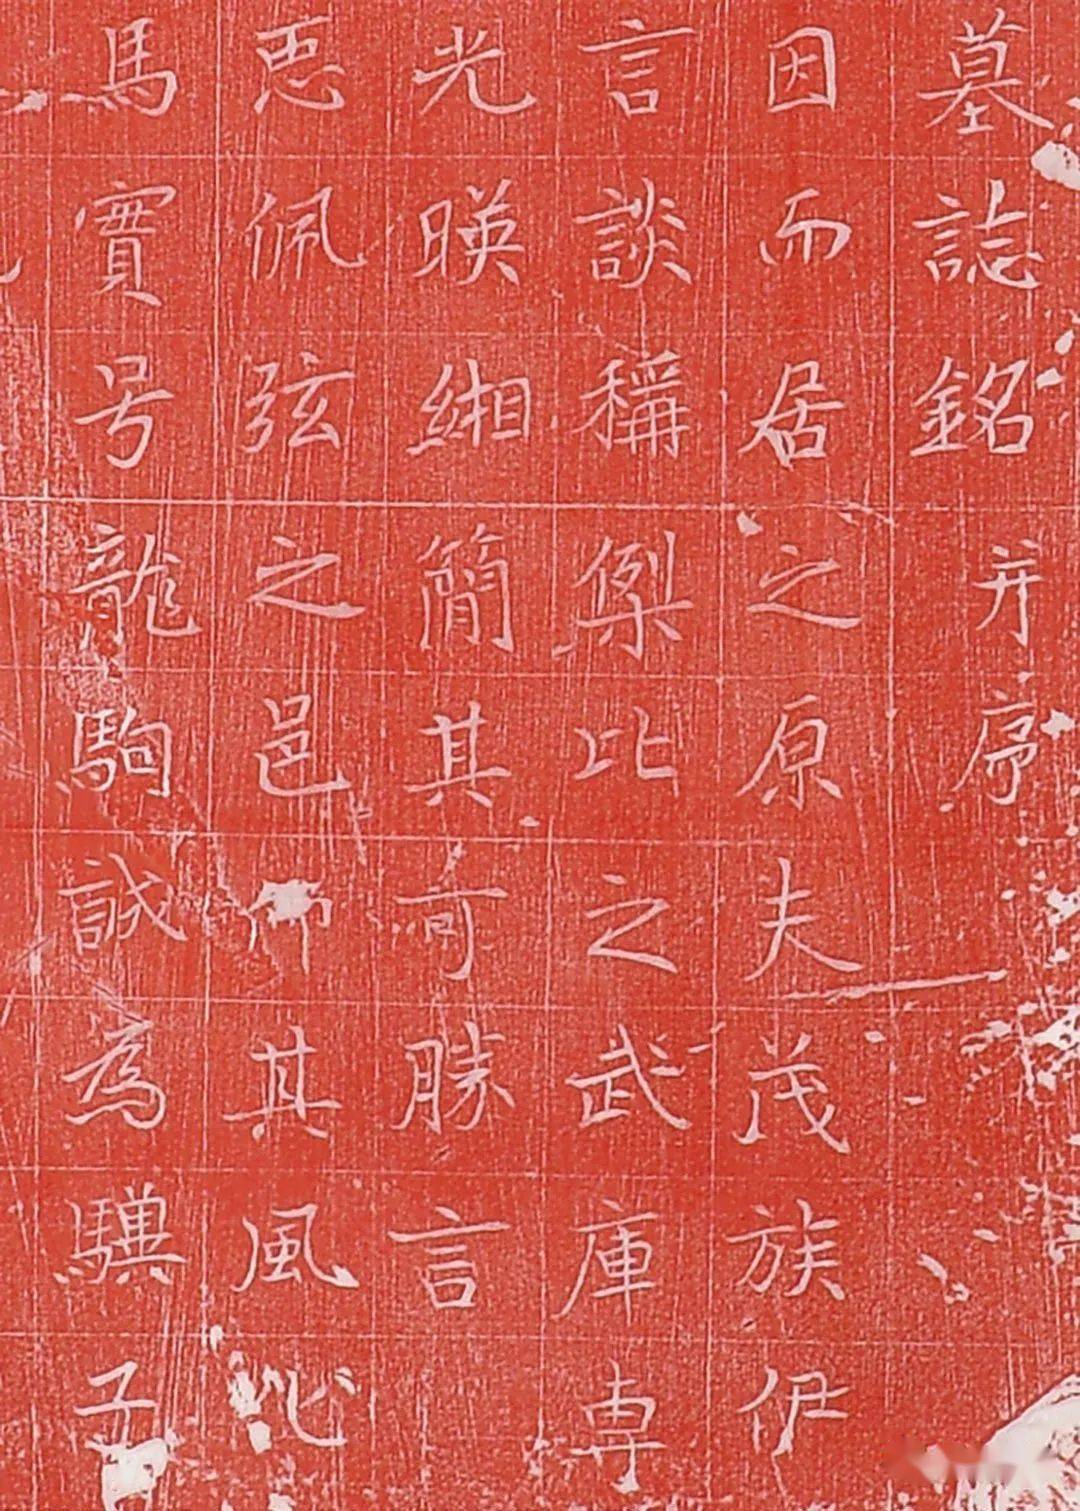 墓誌銘并序
因而居之原夫茂族伊
言談稱㮚比之武庫専
光暎緗簡其可勝言
思佩弦之邑仰其風化
馬實号龍駒誠為驥子